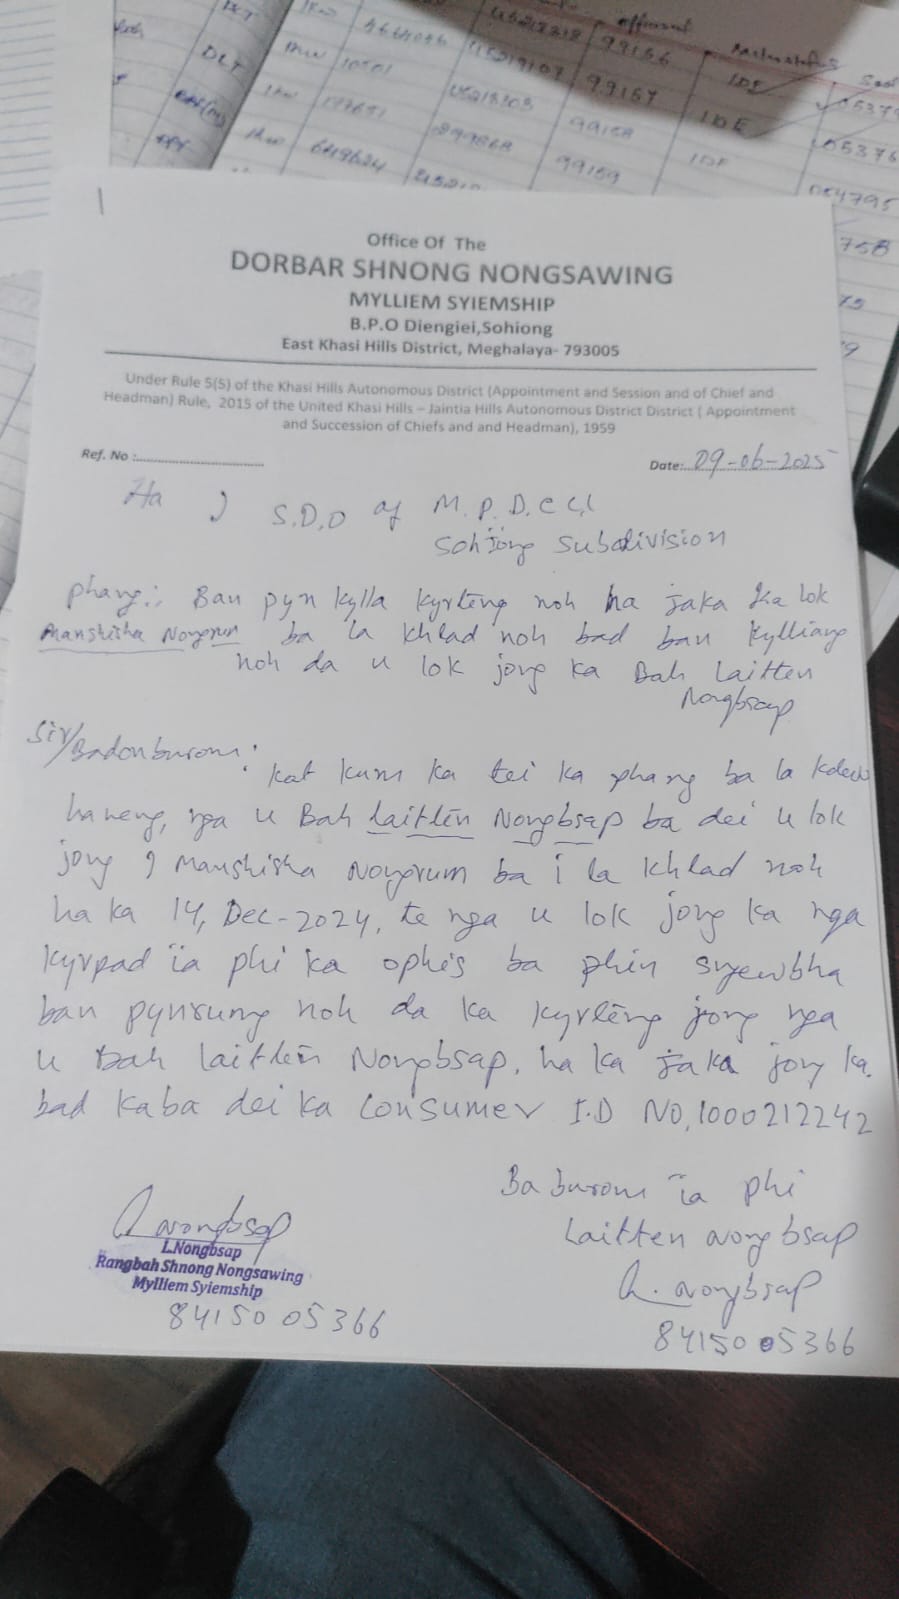 DLT 1Kw 45218318 99156
DLT 1Kw 10501 45219107 99157 IDE 05375
1Kw 177651 45218303 99158 IDE 05376
1Kw 6419624 899868 99159 IDF 054795
758
Office Of The
DORBAR SHNONG NONGSAWING
MYLLIEM SYIEMSHIP
B.P.O Diengiei,Sohiong
East Khasi Hills District, Meghalaya- 793005
Under Rule 5(5) of the Khasi Hills Autonomous District (Appointment and Session and of Chief and
Headman) Rule, 2015 of the United Khasi Hills – Jaintia Hills Autonomous District District ( Appointment
and Succession of Chiefs and and Headman), 1959
Ref. No :........................ Date: 09-06-2025
Ha, S.D.O of M.P.D.C.L
Sohiong Subdivision
phang:. Ban pyn kylla kyrteng noh ha jaka ka lok
Manshisha Nongrum ba la khlad noh bad ban kylliang
noh da u lok jong ka Bah Laitten
Nongbsap
Sir/Badonburom:
kat kum ka tei ka phang ba la kdew
haneng, nga u Bah Laitlēn Nongbsap ba dei u lok
jong I Manshisha Nongrum ba ï la khlad noh
ha ka 14, Dec-2024, te nga u lok jong ka nga
kyrpad ïa phi ka ophis ba phin sngewbha
ban pynrung noh da ka kyrtēng jong nga
u Bah Laitlēn Nongbsap, ha ka jaka jong ka.
bad kaba dei ka Consumer I.D NO,1000212242
Ba burom ïa phi
Laitten Nongbsap
L. Nongbsap
84150 05366
L. Nongbsap
L.Nongbsap
Rangbah Shnong Nongsawing
Mylliem Syiemship
84150 05366